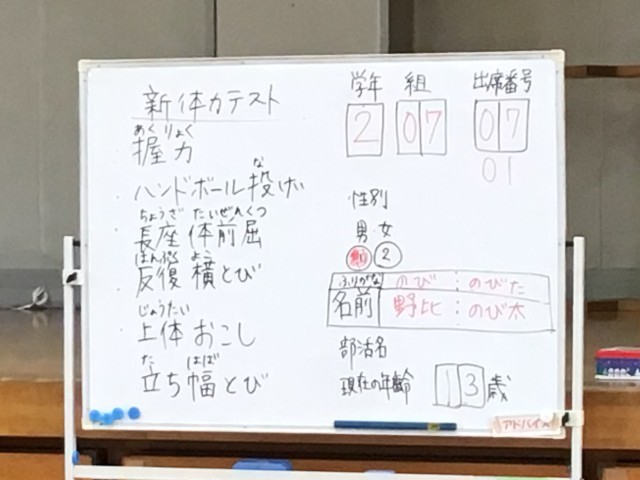 新体力テスト
あくりょく
握力
な
ハンドボール投げ
ちょうざ たいぜんくつ
長座体前屈
はんぷく よこ
反復横とび
じょうたい
上体おこし
た はば
立ち幅とび
学年 組 出席番号
2 07 07
01
性別
男 女
2
ふりがな のび : のびた
名前 野比 : のび太
部活名
現在の年齢 13歳
アドバイス